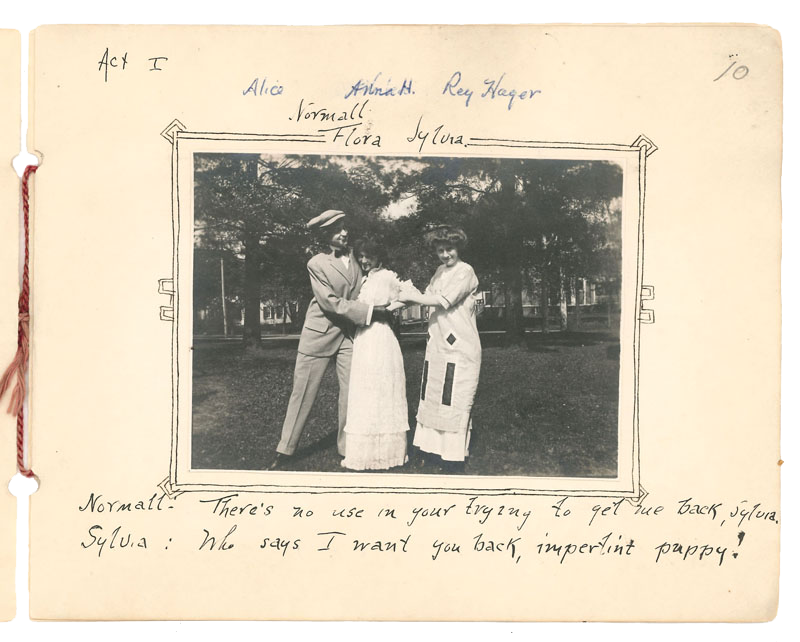 Act I
10
Alice Anna H. Rey Hager
Normall
Flora Sylvia.
Normall- There's no use in your trying to get me back, Sylvia.
Sylvia : Who says I want you back, impertint puppy!